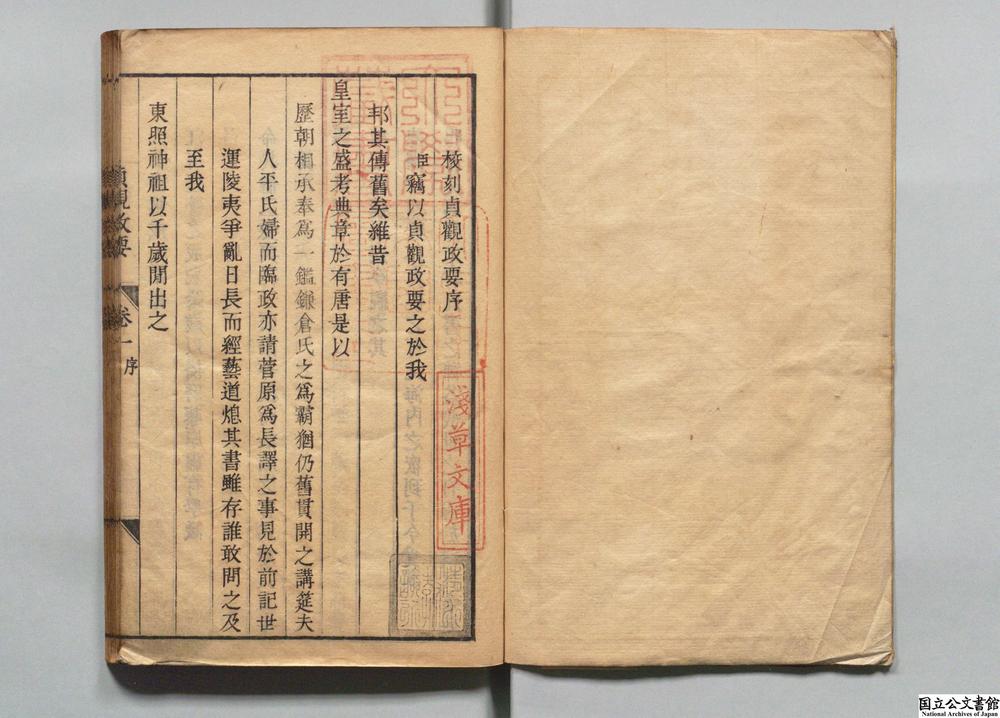 校刻貞觀政要序
臣竊以貞觀政要之於我
邦其傳舊矣維昔
皇室之盛考典章於有唐是以
歷朝相承奉爲一鑑鎌倉氏之爲霸猶仍舊貫開之講筵夫
人平氏婦而臨政亦請菅原爲長譯之事見於前記世
運陵夷爭亂日長而經藝道熄其書雖存誰敢問之及
至我
東照神祖以千歲間出之
貞觀政要
卷一
序
淺草文庫
国立公文書館
National Archives of Japan